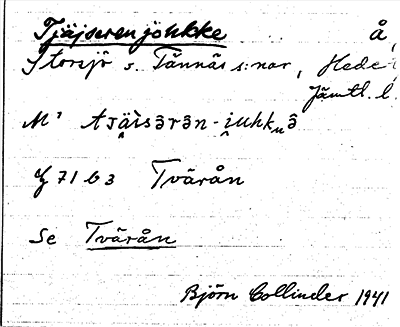 Tjäjserenjohkke å
Storsjö s. Tännäs s:nar, Hede
Jämtl. l
M¹
Y 71 b 3 Tvärån
Se Tvärån
Björn Collinder 1941